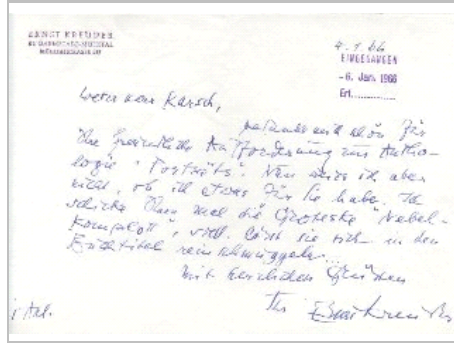 ERNST KREUDER
61 DARMSTADT-MÜHLTAL
4.1.66
EINGEGANGEN
-6. Jan. 1966
Erl..........
Lieber Herr Karsch,
bedanke mich schön für
Ihre freundliche Aufforderung zur Antho-
logie "Porträts". Nun weiss ich aber
nicht, ob ich etwas für Sie habe. Ich
schicke Ihnen mal die Groteske "Nebel-
Komplott", vill. lässt sie sich in den
Buchtitel reinschmuggeln...
Mit herzlichen Grüßen
Ihr Ernst Kreuder
1 Anl.